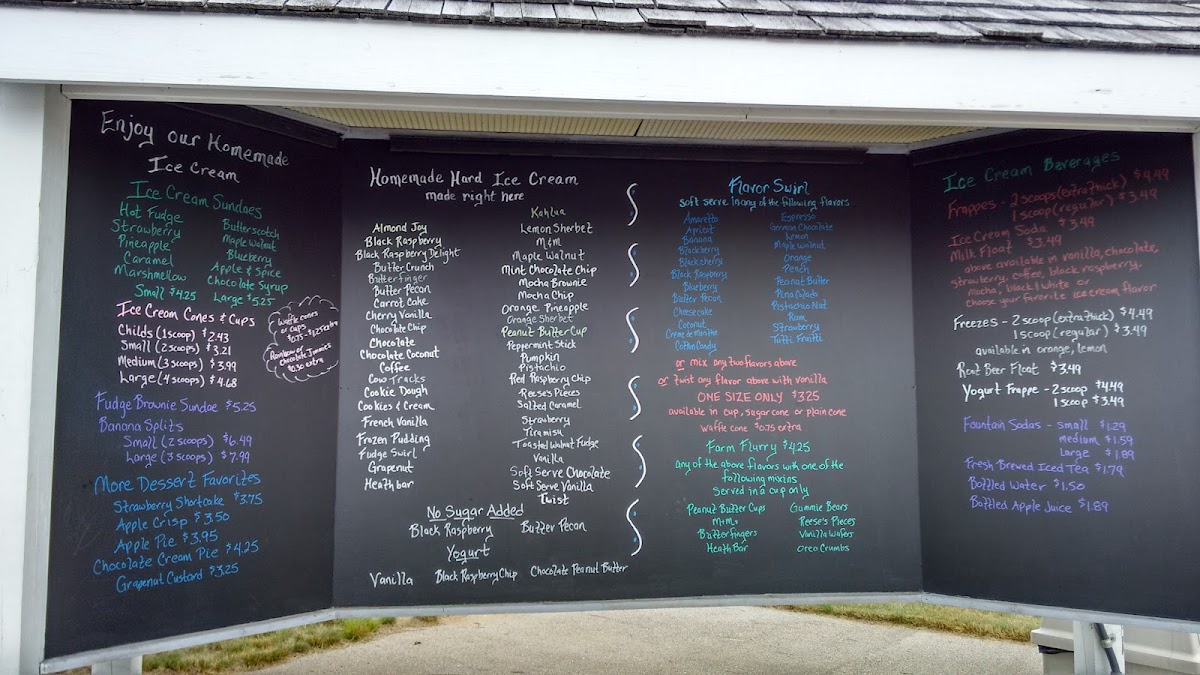 Enjoy our Homemade
Ice Cream
Ice Cream Sundaes
Hot Fudge
Strawberry
Pineapple
Caramel
Marshmellow
Butterscotch
Maple Walnut
Blueberry
Apple & Spice
Chocolate Syrup
Small $4.25 Large $5.25
Ice Cream Cones & Cups
Childs (1 scoop) $2.43
Small (2 scoops) $3.21
Medium (3 scoops) $3.99
Large (4 scoops) $4.68
Waffle cones
or cups
$0.75 - $1.25 extra
Rainbow or
chocolate Jimmies
$0.30 extra
Fudge Brownie Sundae $5.25
Banana Splits
Small (2 scoops) $6.49
Large (3 scoops) $7.99
More Dessert Favorites
Strawberry Shortcake $3.75
Apple Crisp $3.50
Apple Pie $3.95
Chocolate Cream Pie $4.25
Grapenut Custard $3.25
Homemade Hard Ice Cream
made right here
Almond Joy
Black Raspberry
Black Raspberry Delight
Butter Crunch
Butterfinger
Butter Pecan
Carrot Cake
Cherry Vanilla
Chocolate Chip
Chocolate
Chocolate Coconut
Coffee
Cow Tracks
Cookie Dough
Cookies & Cream
French Vanilla
Frozen Pudding
Fudge Swirl
Grapenut
Heath bar
Kahlua
Lemon Sherbet
M&M
Maple Walnut
Mint Chocolate Chip
Mocha Brownie
Mocha Chip
Orange Pineapple
Orange Sherbet
Peanut Butter Cup
Peppermint Stick
Pumpkin
Pistachio
Red Raspberry Chip
Reese's Pieces
Salted Caramel
Strawberry
Tiramisu
Toasted Walnut Fudge
Vanilla
Soft Serve Chocolate
Soft Serve Vanilla
Twist
No Sugar Added
Black Raspberry Butter Pecan
Yogurt
Vanilla Black Raspberry Chip Chocolate Peanut Butter
Flavor Swirl
soft serve in any of the following flavors
Amaretto
Apricot
Banana
Blackberry
Black cherry
Black Raspberry
Blueberry
Butter Pecan
Cheesecake
Coconut
Creme de Menthe
Cotton Candy
Espresso
German Chocolate
Lemon
Maple Walnut
Orange
Peach
Peanut Butter
Pina Colada
Pistachio Nut
Rum
Strawberry
Tutti Frutti
or mix any two flavors above
or twist any flavor above with vanilla
ONE SIZE ONLY $3.25
available in cup, sugar cone or plain cone
waffle cone $0.75 extra
Farm Flurry $4.25
any of the above flavors with one of the
following mixins
Served in a cup only
Peanut Butter Cups
M+Ms
Butterfingers
Heath Bar
Gummie Bears
Reese's Pieces
Vanilla Wafers
Oreo Crumbs
Ice Cream Beverages
Frappes - 2 scoops (extra thick) $4.49
1 scoop (regular) $3.49
Ice Cream Soda $3.49
Milk Float $3.49
above available in vanilla, chocolate,
strawberry, coffee, black raspberry,
mocha, black/white or
choose your favorite ice cream flavor
Freezes - 2 scoop (extra thick) $4.49
1 scoop (regular) $3.49
available in orange, lemon
Root Beer Float $3.49
Yogurt Frappe - 2 scoop $4.49
1 scoop $3.49
Fountain Sodas - small $1.29
medium $1.59
Large $1.89
Fresh Brewed Iced Tea $1.79
Bottled Water $1.50
Bottled Apple Juice $1.89